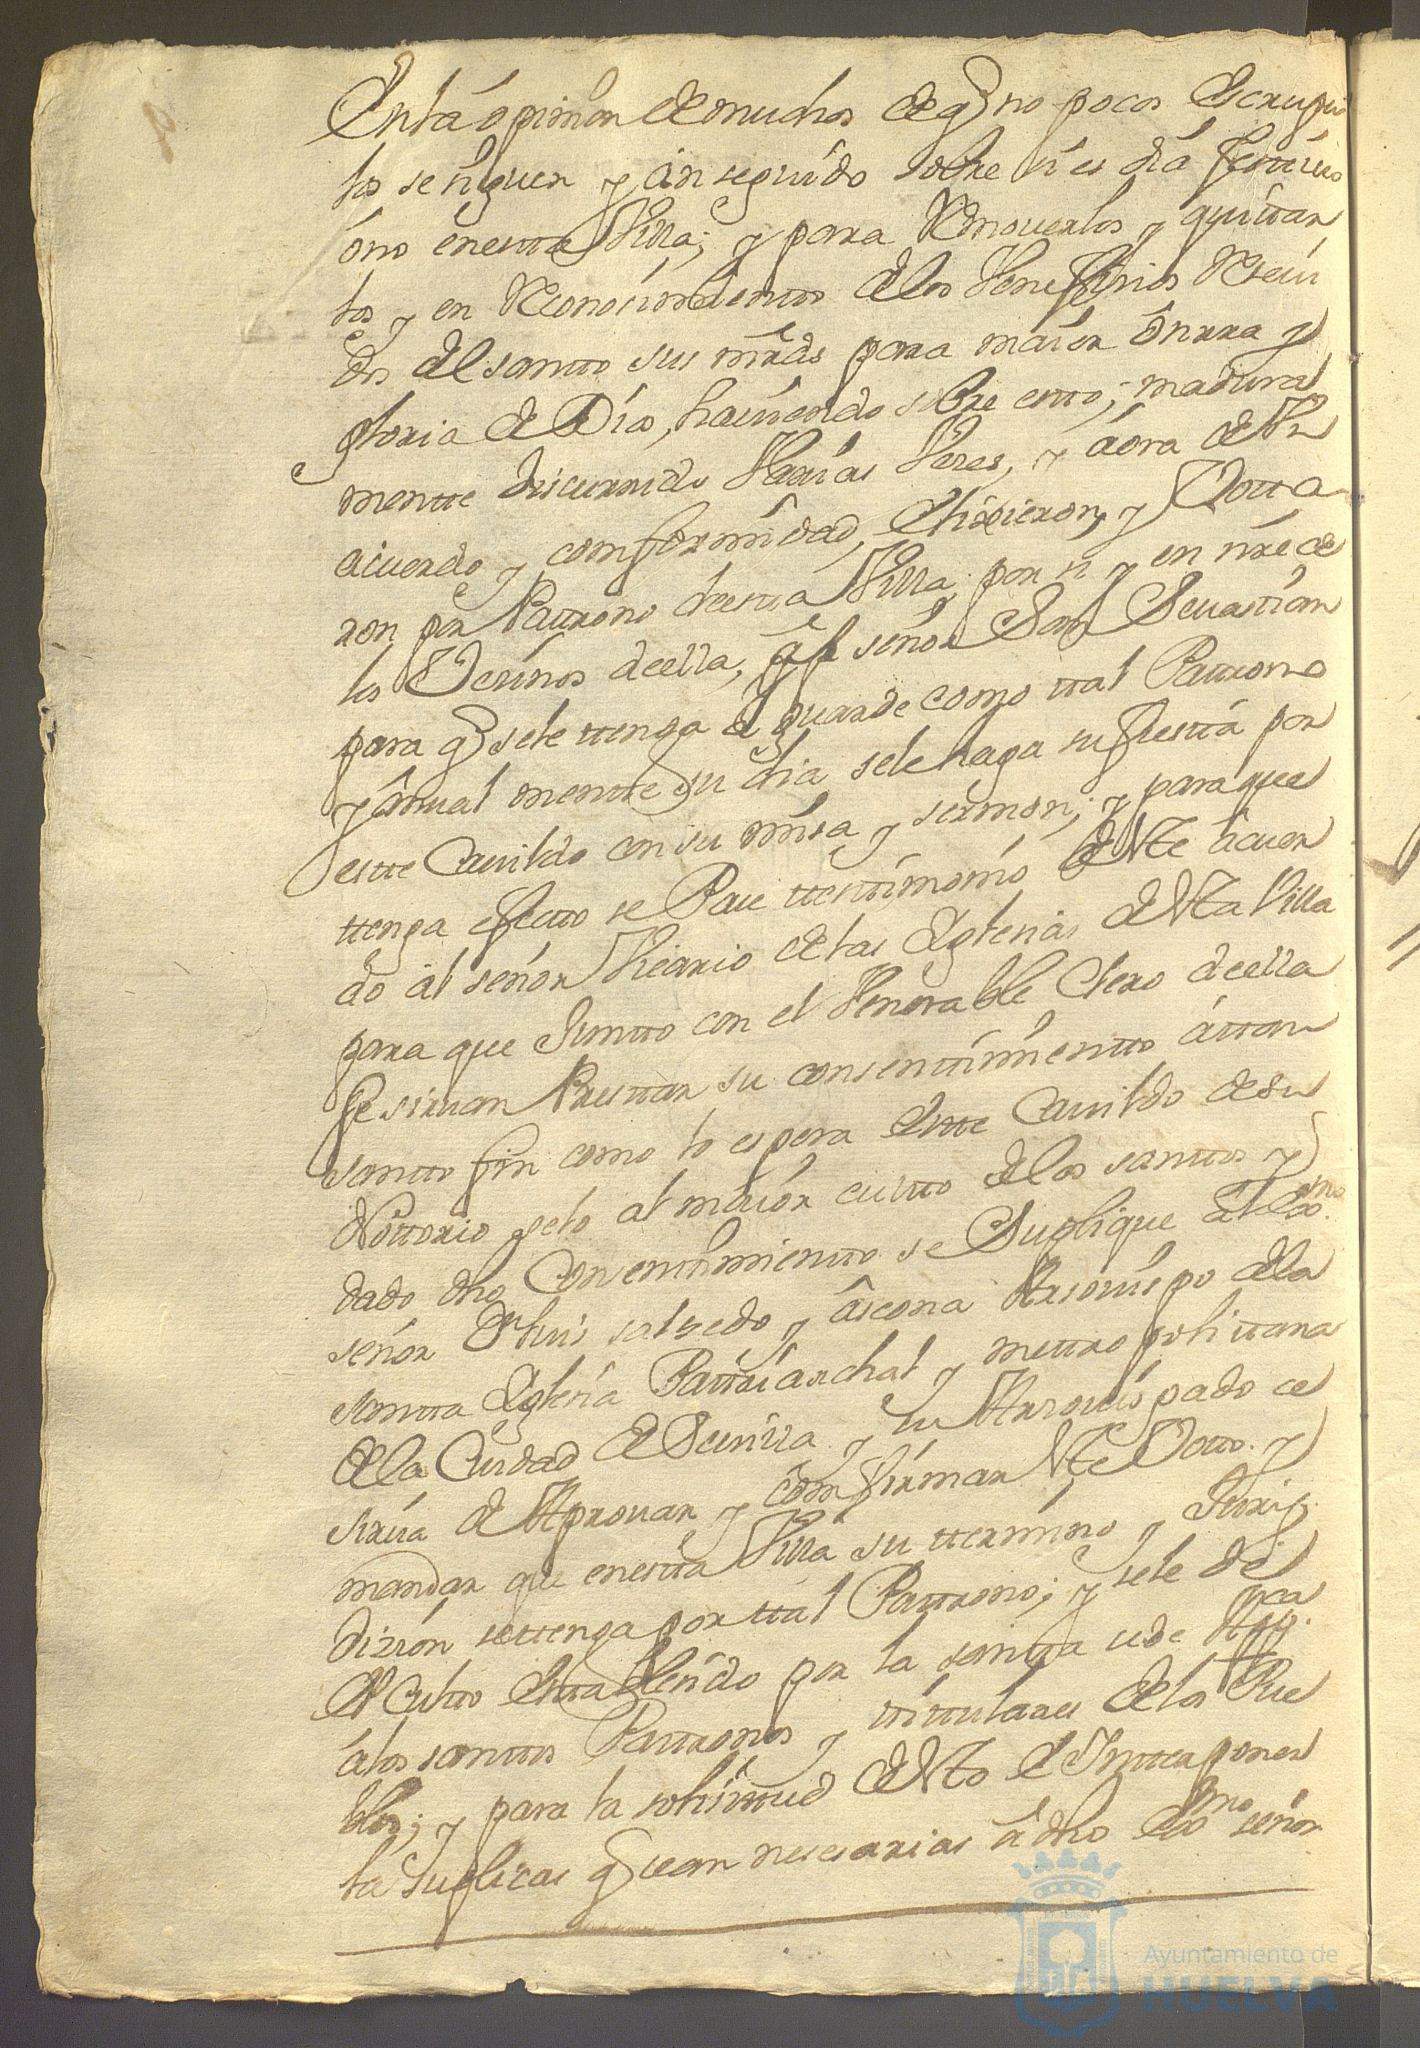 En la opinion de muchos de q no pocos escrupu
los se siguen y an seguido sobre si es dia festiuo
ono en estta Villa; y para Remouerlos y quittar
los y en Reconosimientto de los Venefisios Reseui
dos del santto sus mrds para maior onrra y
gloria de Dios, hauiendo sobre estto; madura
mentte discurrido Varias Vezes, y aora de Vn
acuerdo y comformidad, Elixieron, y Votta
ron por Pattrono de estta Villa, por si y en nre de
los Vesinos de ella, al señor San Sevastian
para q se le ttenga y guarde como ttal Pattrono
y anual mentte su dia se le haga su fiestta por
estte Cauildo con su misa y sermon; y para que
ttenga efectto se Pase ttesttimonio de estte acuer
do al señor Vicario de las Yglesias de estta Villa
para que Juntto con el Venerable Clero de ella
se siruan Presttar su consenttimientto a ttan
santto fin como lo espera estte Cauildo de su
Nottorio zelo al maior cultto de los santtos y
dado dho Consenttimientto se Suplique al Exmo.
señor Dn Luis salsedo y ascona Arsouispo de la
santta Yglesia Pattriarchal y mettropolittana
de la Ciudad de Seuilla y su Arzouispado se
sirua de Aprouar y comfirmar estte Votto. y
mandar que en estta Villa su ttermino y Juris
dizion se ttenga por ttal Pattrono; y se le de
el Cultto esttablesido por la santta sede Appca.
a los santtos Pattronos y tittulares de los Pue
blos; y para la solisittud de estto e Intterponer
la Suplicas q sean nesesarias a dho Exmo señor
Ayuntamiento de
HUELVA